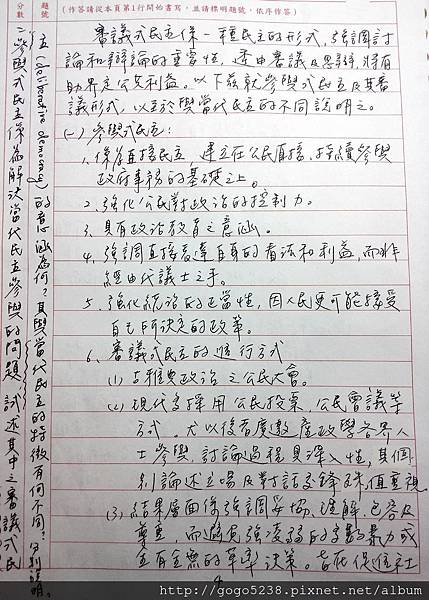 題號
分數
(作答請從本頁第1行開始書寫,並請標明題號,依序作答)
二、參與式民主係為解決當代民主參與的問題,試述其中之審議式民
主(deliberative democracy)的意涵為何?其與當代民主的特徵有何不同?分別說明。
審議式民主係一種民主的形式,強調討
論和辯論的重當性,透由審議及思辯,將有
助界定公共利益。以下茲就參與式民主及其審
議形式,以至於與當代民主的不同說明之。
(一)參與式民主:
1、係直接民主,建立在公民直接、持續參與
政府事務的基礎之上。
2、強化公民對政治的控制力。
3、具有政治教育之意涵。
4、強調直接表達自身的看法和利益,而非
經由代議士之手。
5、強化統治的正當性,因人民更可能接受
自己所決定的政策。
6、審議式民主的進行方式
(1)古雅典政治之公民大會。
(2)現代多採用公民投票、公民會議等
方式。尤以後者廣邀產政學各界人
士參與,討論過程具深入性,其個
別論述立場及對話交鋒殊值重視
(3)結果層面係強調妥協、理解、包容及
尊重,而避免強凌弱的多數暴力或
全有全無的草率決策。旨在促進社
http://gogo5238.pixnet.net/album